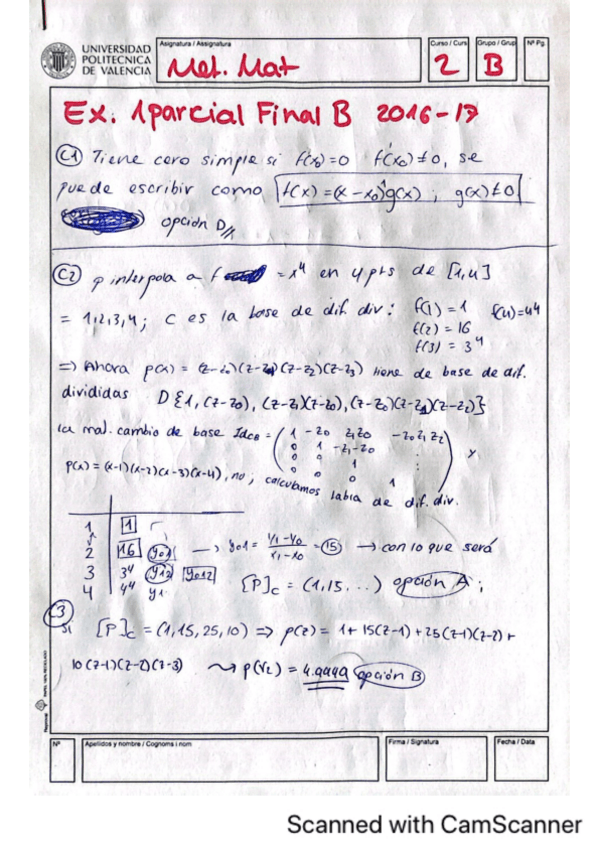 UNIVERSIDAD
POLITECNICA
DE VALENCIA
Asignatura / Assignatura
Met. Mat
Curso / Curs
2
Grupo / Grup
B
Nº Pg.
Ex. 1 parcial Final B 2016-17
C1 Tiene cero simple si f(x₀)=0 f'(x₀)≠0, se
puede escribir como f(x)=(x-x₀)¹g(x) ; g(x)≠0
opción D//
C2 p interpola a f = x⁴ en 4 pts de [1,4]
= 1,2,3,4; C es la base de dif. div: f(1)=1 f(4)=4⁴
f(2)=16
f(3)=3⁴
=> Ahora p(x) = (z-z₀)(z-z₁)(z-z₂)(z-z₃) tiene de base de dif.
divididas D{1, (z-z₀), (z-z₁)(z-z₀), (z-z₀)(z-z₁)(z-z₂)}
la mat. cambio de base
p(x) = (x-1)(x-2)(x-3)(x-4), no; calculamos tabla de dif. div.
1 1
2 16 y01 → y01 = (y1-y0)/(x1-x0) = 15 → con lo que será
3 3⁴ y12 y012 [P]c = (1,15...) opción A;
4 4⁴ y1
C3
Si [P]c = (1,15,25,10) => p(z) = 1+15(z-1)+25(z-1)(z-2)+
10(z-1)(z-2)(z-3) p(√2) = 4.9999 opción B
Nº
Apellidos y nombre / Cognoms i nom
Firma / Signatura
Fecha / Data
Scanned with CamScanner